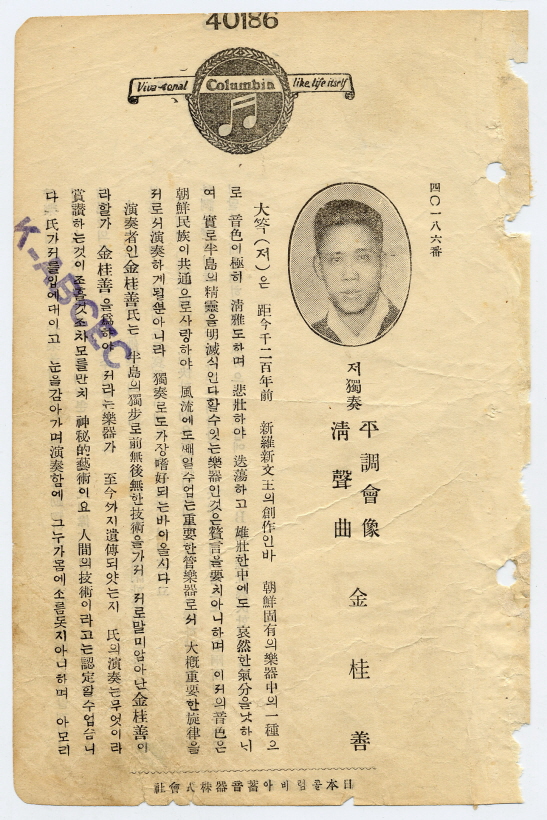 40186
Viva-tonal
Columbia
like life itself
四〇一八六番
저獨奏
平調會像
淸聲曲
金桂善
大笒(저)은 距今千二百年前 新羅新文王의創作인바 朝鮮固有의樂器中의一種으
로 音色이極히 淸雅도하며 悲壯하야 迭蕩하고 雄壯한中에도 哀然한氣分을낫하너
여 實로半島의精靈을明滅식인다할수잇는樂器인것은贅言을要치아니하며 이저의音色은
朝鮮民族이共通으로사랑하야 風流에도쎄일수업는重要한管樂器로서 大槪重要한旋律을
저로서演奏하게될뿐아니라 獨奏로도가장嗜好되는바이올시다
演奏者인金桂善氏는 半島의獨步로前無後無한技術을가저 저로말미암아난金桂善이
라할가 金桂善을爲하야 저라는樂器가 至今까지遺傳되얏는지 氏의演奏는무엇이라
賞讚하는것이조흘것조차모를만치 神秘的藝術이요 人間의技術이라고는認定할수업습니
다 氏가저를입에대이고 눈을감아가며演奏함에 그누가몸에소름돗지아니하며 아모리
K-ABCEC
日本콜럼비아蓄音器株式會社